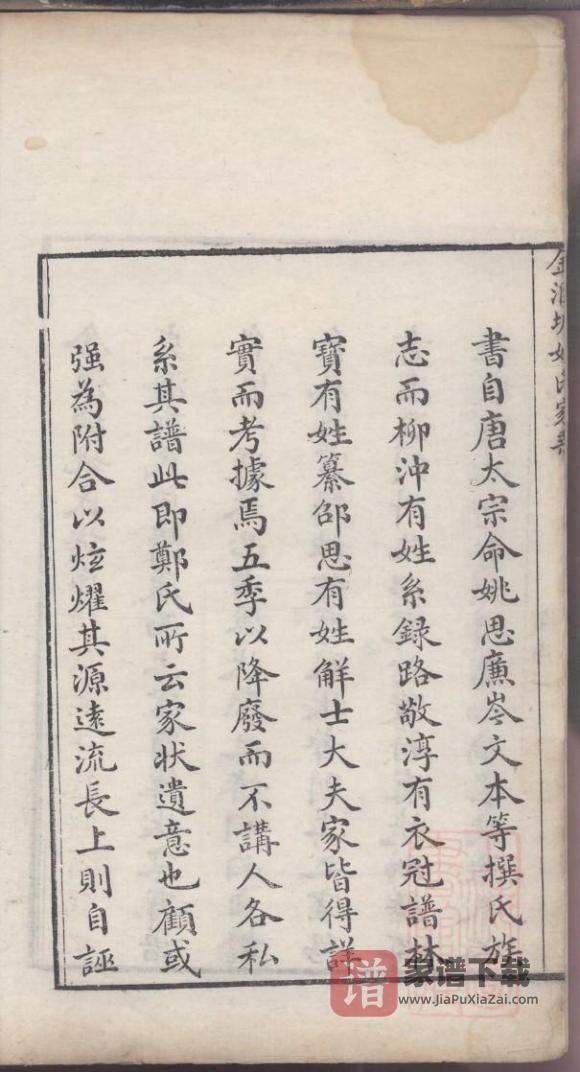 書自唐太宗命姚思廉岑文本等撰氏族
志而柳沖有姓系錄路敬淳有衣冠譜林
寶有姓纂邵思有姓解士大夫家皆得詳
實而考據焉五季以降廢而不講人各私
系其譜此即鄭氏所云家狀遺意也顧或
强為附合以炫燿其源遠流長上則自誣
家谱下载
谱
www.JiaPuXiaZai.com